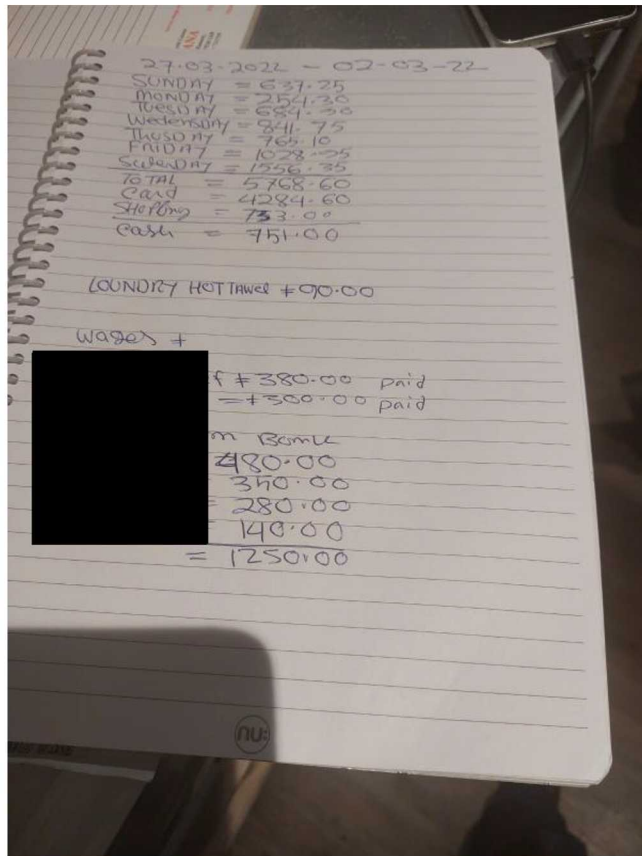 27.03.2022 - 02-03-22
SUNDAY = 637.25
MONDAY = 254.30
TUESDAY = 684.50
Wedensday = 841.75
THUSDAY = 765.10
FRIDAY = 1028.25
SaterDAY = 1556.35
TOTAL = 5768.60
Card = 4284.60
SHoPing = 733.00
cash = 751.00
LOUNDRY HOT TAWEL £90.00
wages £
£380.00 paid
= £300.00 paid
Bank
480.00
350.00
= 280.00
= 140.00
= 1250.00
nu: